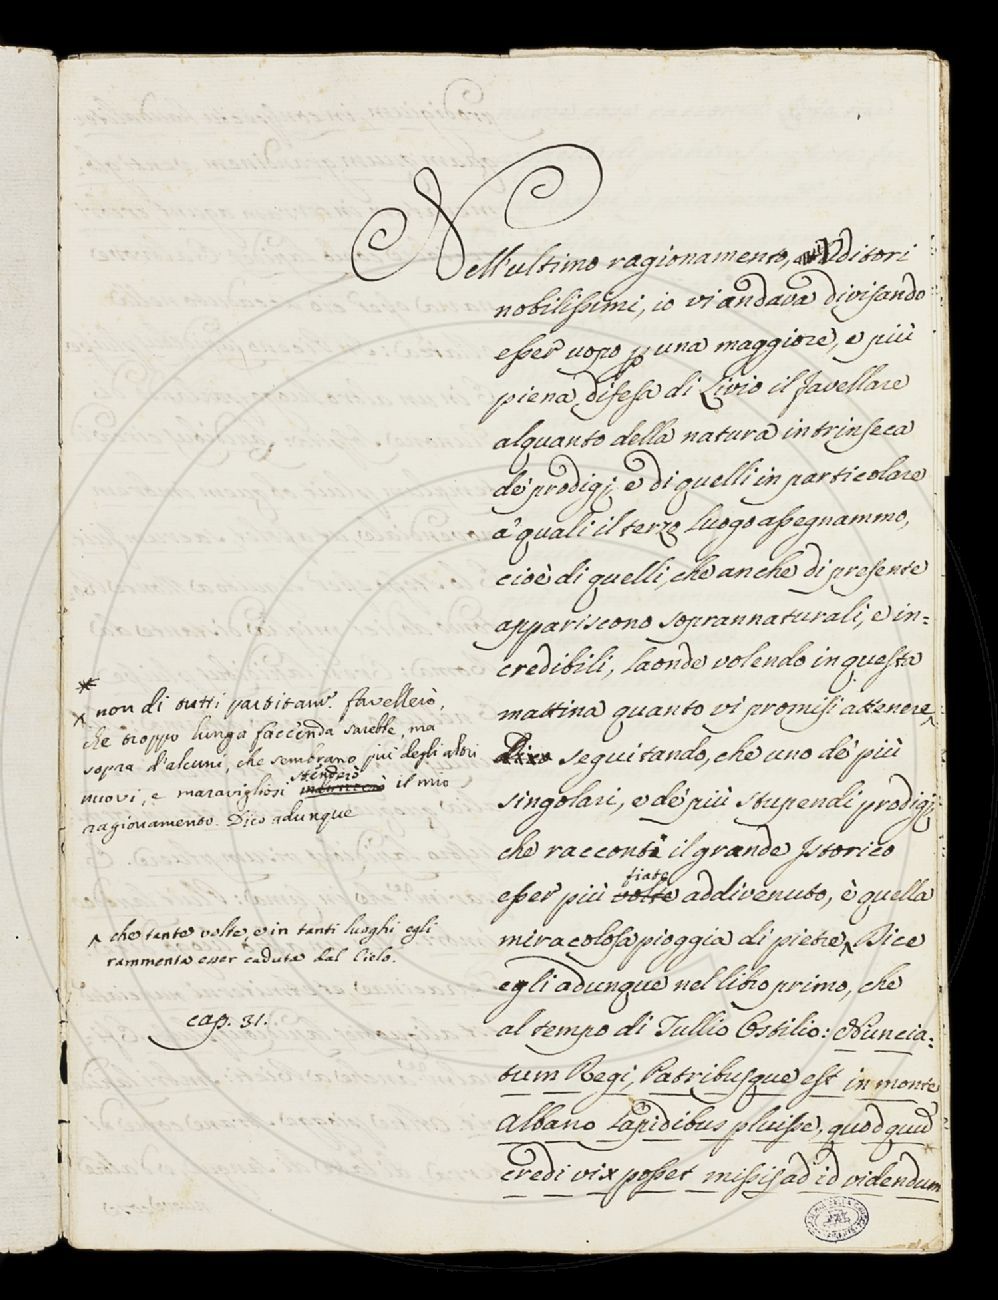 Nell'ultimo ragionamento, Vditori
nobilissimi, io vi andava divisando
esser uopo p una maggiore, e più
piena difesa di Livio il favellare
alquanto della natura intrinseca
de' prodigj, e di quelli in particolare
a' quali il terzo luogo assegnammo,
cioè di quelli, che anche di presente
appariscono soprannaturali, e in=
credibili, laonde volendo in questa
mattina quanto vi promisi attenere ^
seguitando, che uno de' più
singolari, e de' più stupendi prodigj,
che racconti il grande Istorico
fiate
esser più volte addivenuto, è quella
miracolosa pioggia di pietre, ^ Dice
egli adunque nel libro primo, che
al tempo di Tullio Ostilio: Nuncia=
tum Regi, Patribusque est in monte
Albano lapidibus pluisse, quod quum
credi vix posset missis ad id videndum
* ^ non di tutti partitam.e favellerò,
che troppo lunga faccenda sarebbe, ma
sopra d'alcuni, che sembrano più degli altri
stenderò
nuovi, e maravigliosi il mio
ragionamento. Dico adunque
^ che tante volte e in tanti luoghi egli
rammenta esser caduta dal Cielo.
cap. 31.